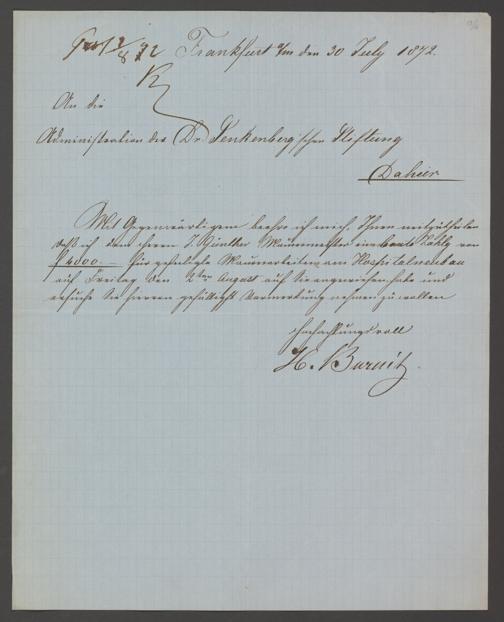 96
Frankfurt a/m den 30 July 1872.
An die
Administration der Dr. Senkenberg'schen Stiftung
Dahier
Mit Gegenwärtigem beehre ich mich, Ihnen mitzutheilen
daß ich dem Herrn J. Günther Maurermeister eine baare Zahlg von
f 4000.— für gefertigte Maurerarbeiten am Hospitalneubau
auf Freitag den 2ten August auf Sie angewiesen habe und
ersuche Sie hiervon gefälligst Vormerkung nehmen zu wollen
Hochachtungsvoll
H. Burnitz.